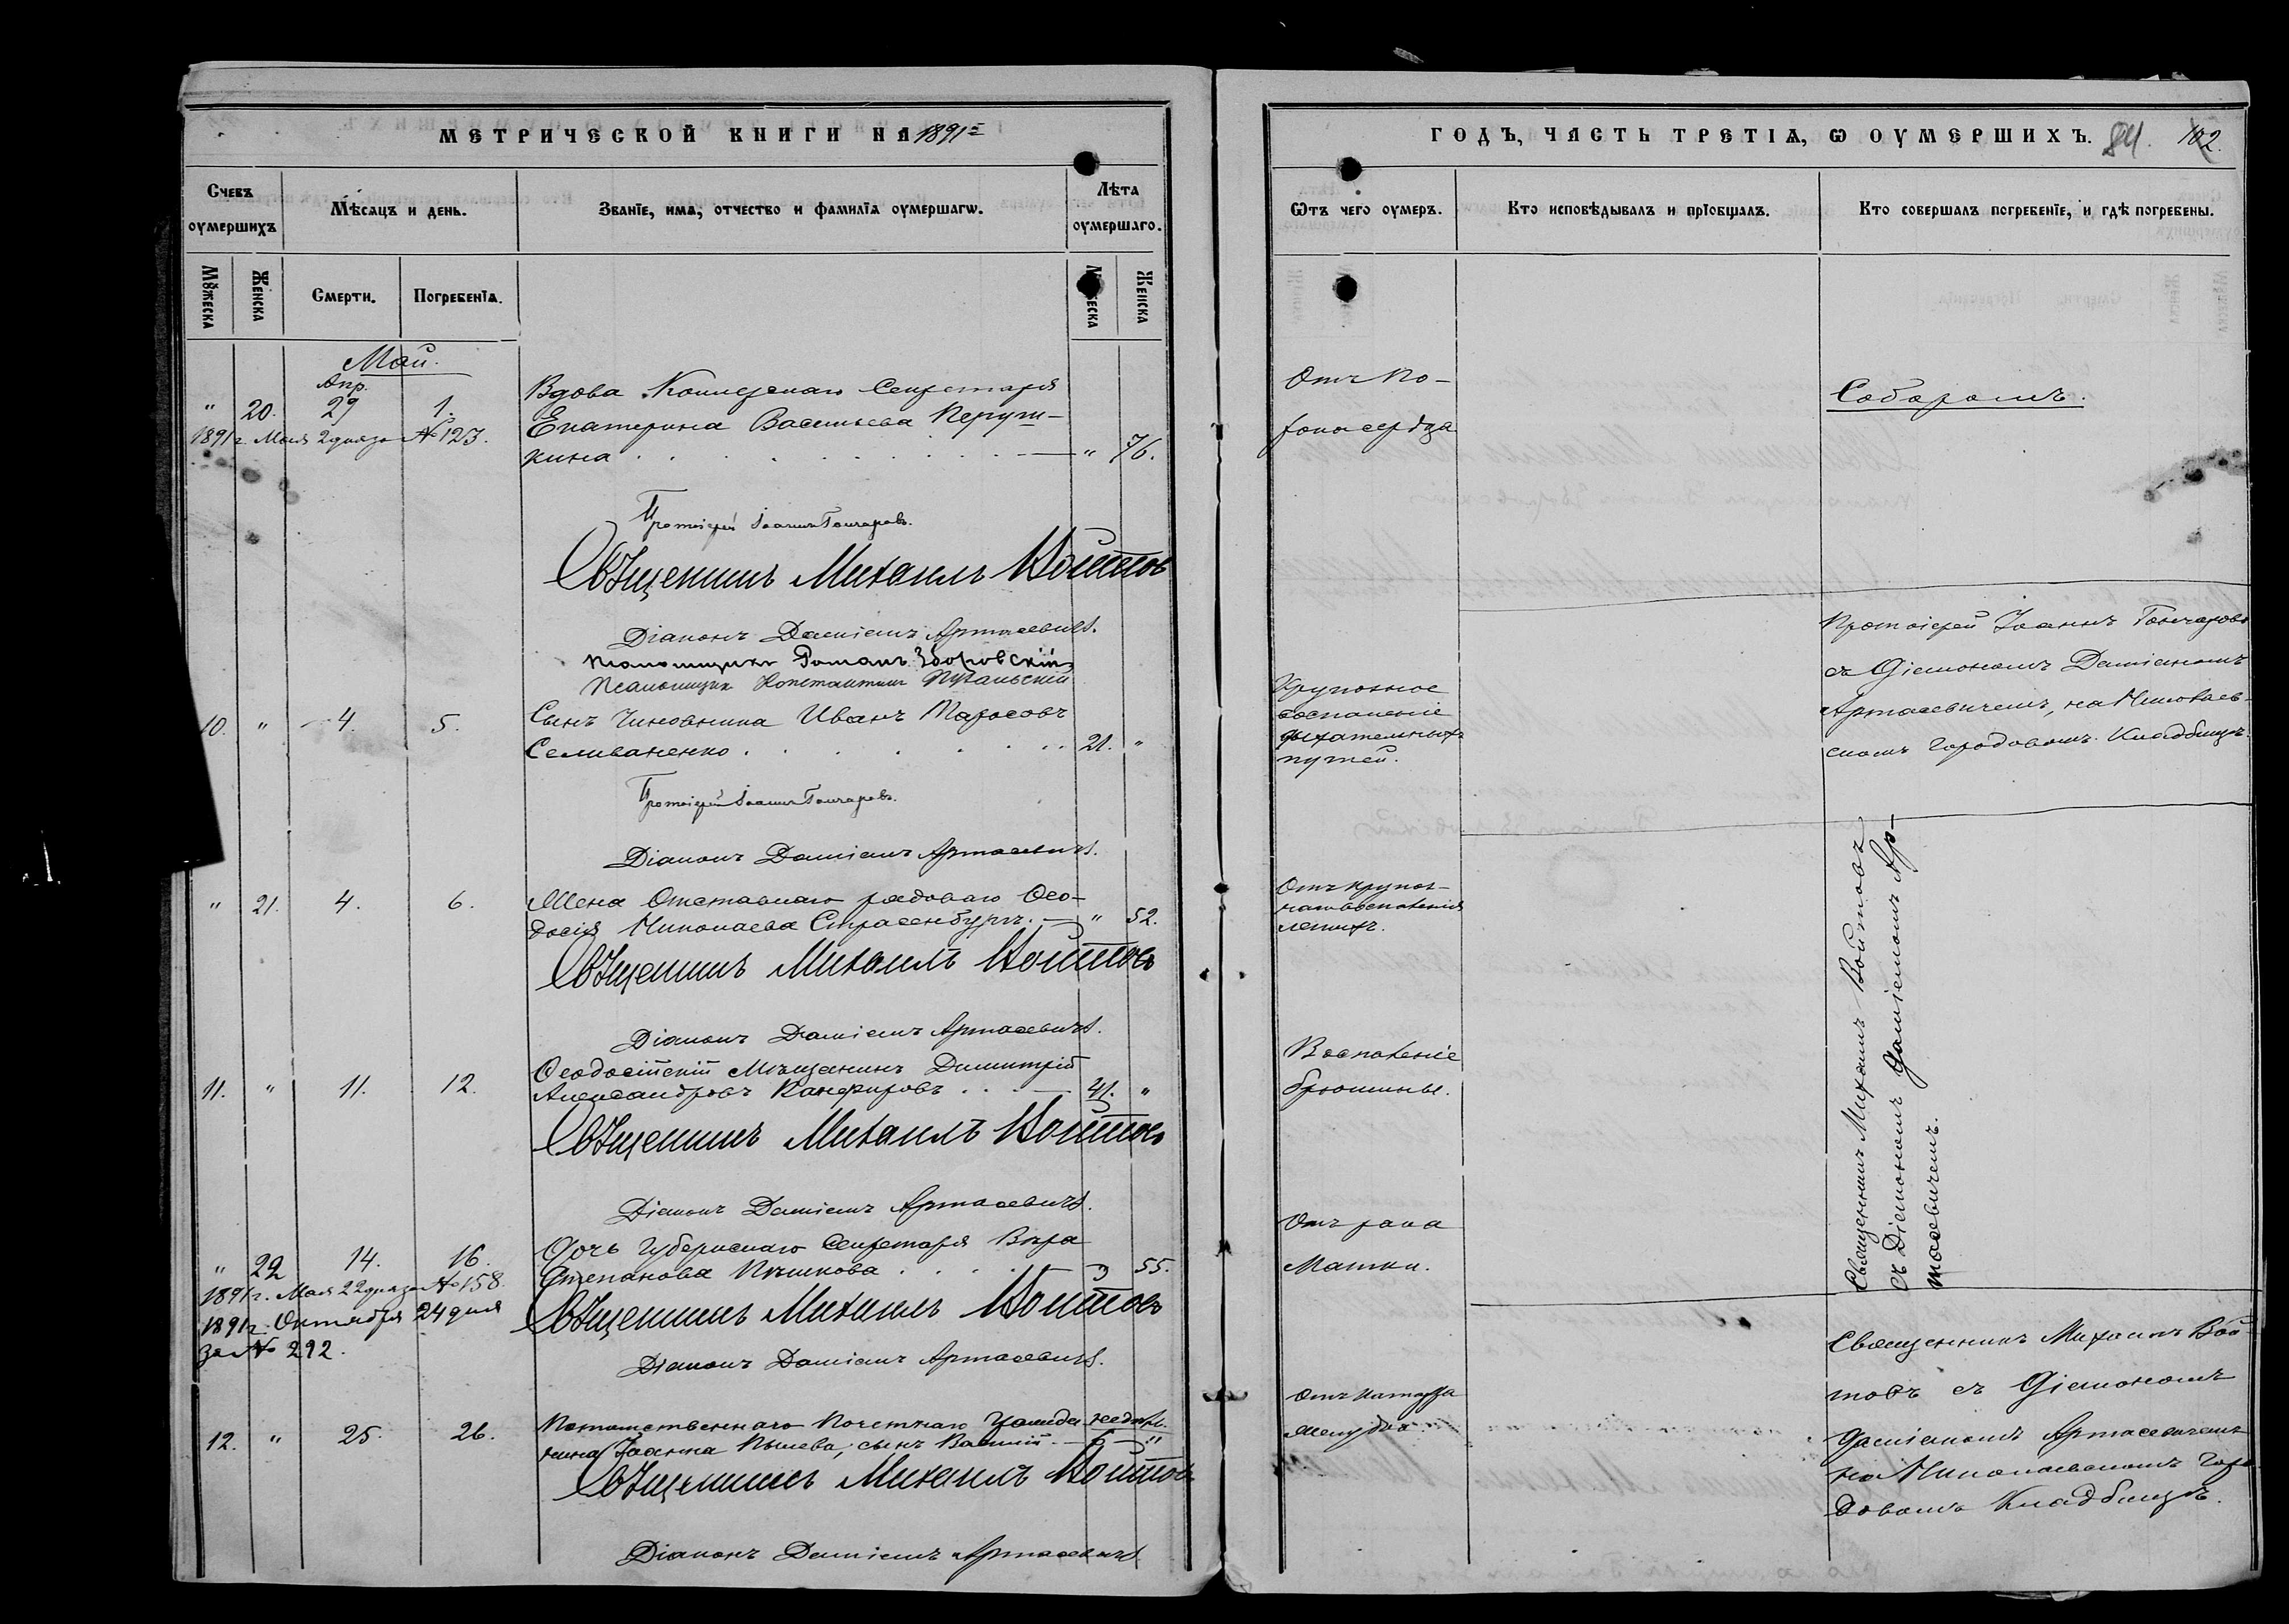 МЕТРИЧЕСКОЙ КНИГИ НА 1891й
Счетъ оумершихъ
Мѣсяцъ и день.
Званїе, имя, отчество и фамилїя оумершагѡ.
Лѣта оумершаго.
Мꙋжеска
Женска
Смерти.
Погребенїя.
Женска
Май.
Апр.
" 20. 29 1.
1891 г. Мая 2 дня за № 123.
Вдова Коллежскаго Секретаря
Екатерина Васильева
кина " 76.
Протоіерей Іоаннъ Гончаровъ.
Священникъ Михаилъ Войтовъ
Діаконъ Даміанъ Артасевичъ.
Псаломщикъ Романъ Зборовскій
Псаломщикъ Константинъ
10. " 4. 5.
Сынъ Чиновника Иванъ
Селиваненко 21. "
Протоіерей Іоаннъ Гончаровъ.
Діаконъ Даміанъ Артасевичъ.
" 21. 4. 6.
Жена Отставнаго рядоваго Ѳео-
досія Николаева Страсенбургъ. " 52.
Священникъ Михаилъ Войтовъ
Діаконъ Даміанъ Артасевичъ.
11. " 11. 12.
Ѳеодосійскій Мѣщанинъ Димитрій
Александровъ 41. "
Священникъ Михаилъ Войтовъ
Діаконъ Даміанъ Артасевичъ.
" 22 14. 16.
Дочь Губернскаго Секретаря Вѣра
Степанова 55.
1891 г. Мая 22 дня за № 158.
1891 г. Октября 24 дня
за № 292.
Священникъ Михаилъ Войтовъ
Діаконъ Даміанъ Артасевичъ.
12. " 25. 26.
Потомственнаго Почетнаго Гражда-
нина Іоанна сынъ Василій 6 "
Священникъ Михаилъ Войтовъ
Діаконъ Даміанъ Артасевичъ.
ГОДЪ, ЧАСТЬ ТРЕТІЯ, Ѡ ОУМЕРШИХЪ. 84. 102.
Ѿтъ чего оумеръ.
Кто исповѣдывалъ и прїобщалъ.
Кто совершалъ погребенїе, и гдѣ погребены.
Отъ по-
рока сердца
Соборомъ.
Крупозное
воспаленіе
дыхательныхъ
путей.
Протоіерей Іоаннъ Гончаровъ
съ Діакономъ Даміаномъ
Артасевичемъ, на Николаев-
скомъ Городовомъ Кладбищѣ.
Отъ крупоз-
наго воспаленія
легкихъ.
Воспаленіе
брюшины.
Отъ рака
Матки.
Священникъ Михаилъ Войтовъ
съ Діакономъ Даміаномъ Ар-
тасевичемъ.
Отъ катарра
желудка.
Священникъ Михаилъ Вой-
товъ съ Діакономъ
Даміаномъ Артасевичемъ
на Николаевскомъ Горо-
довомъ Кладбищѣ.